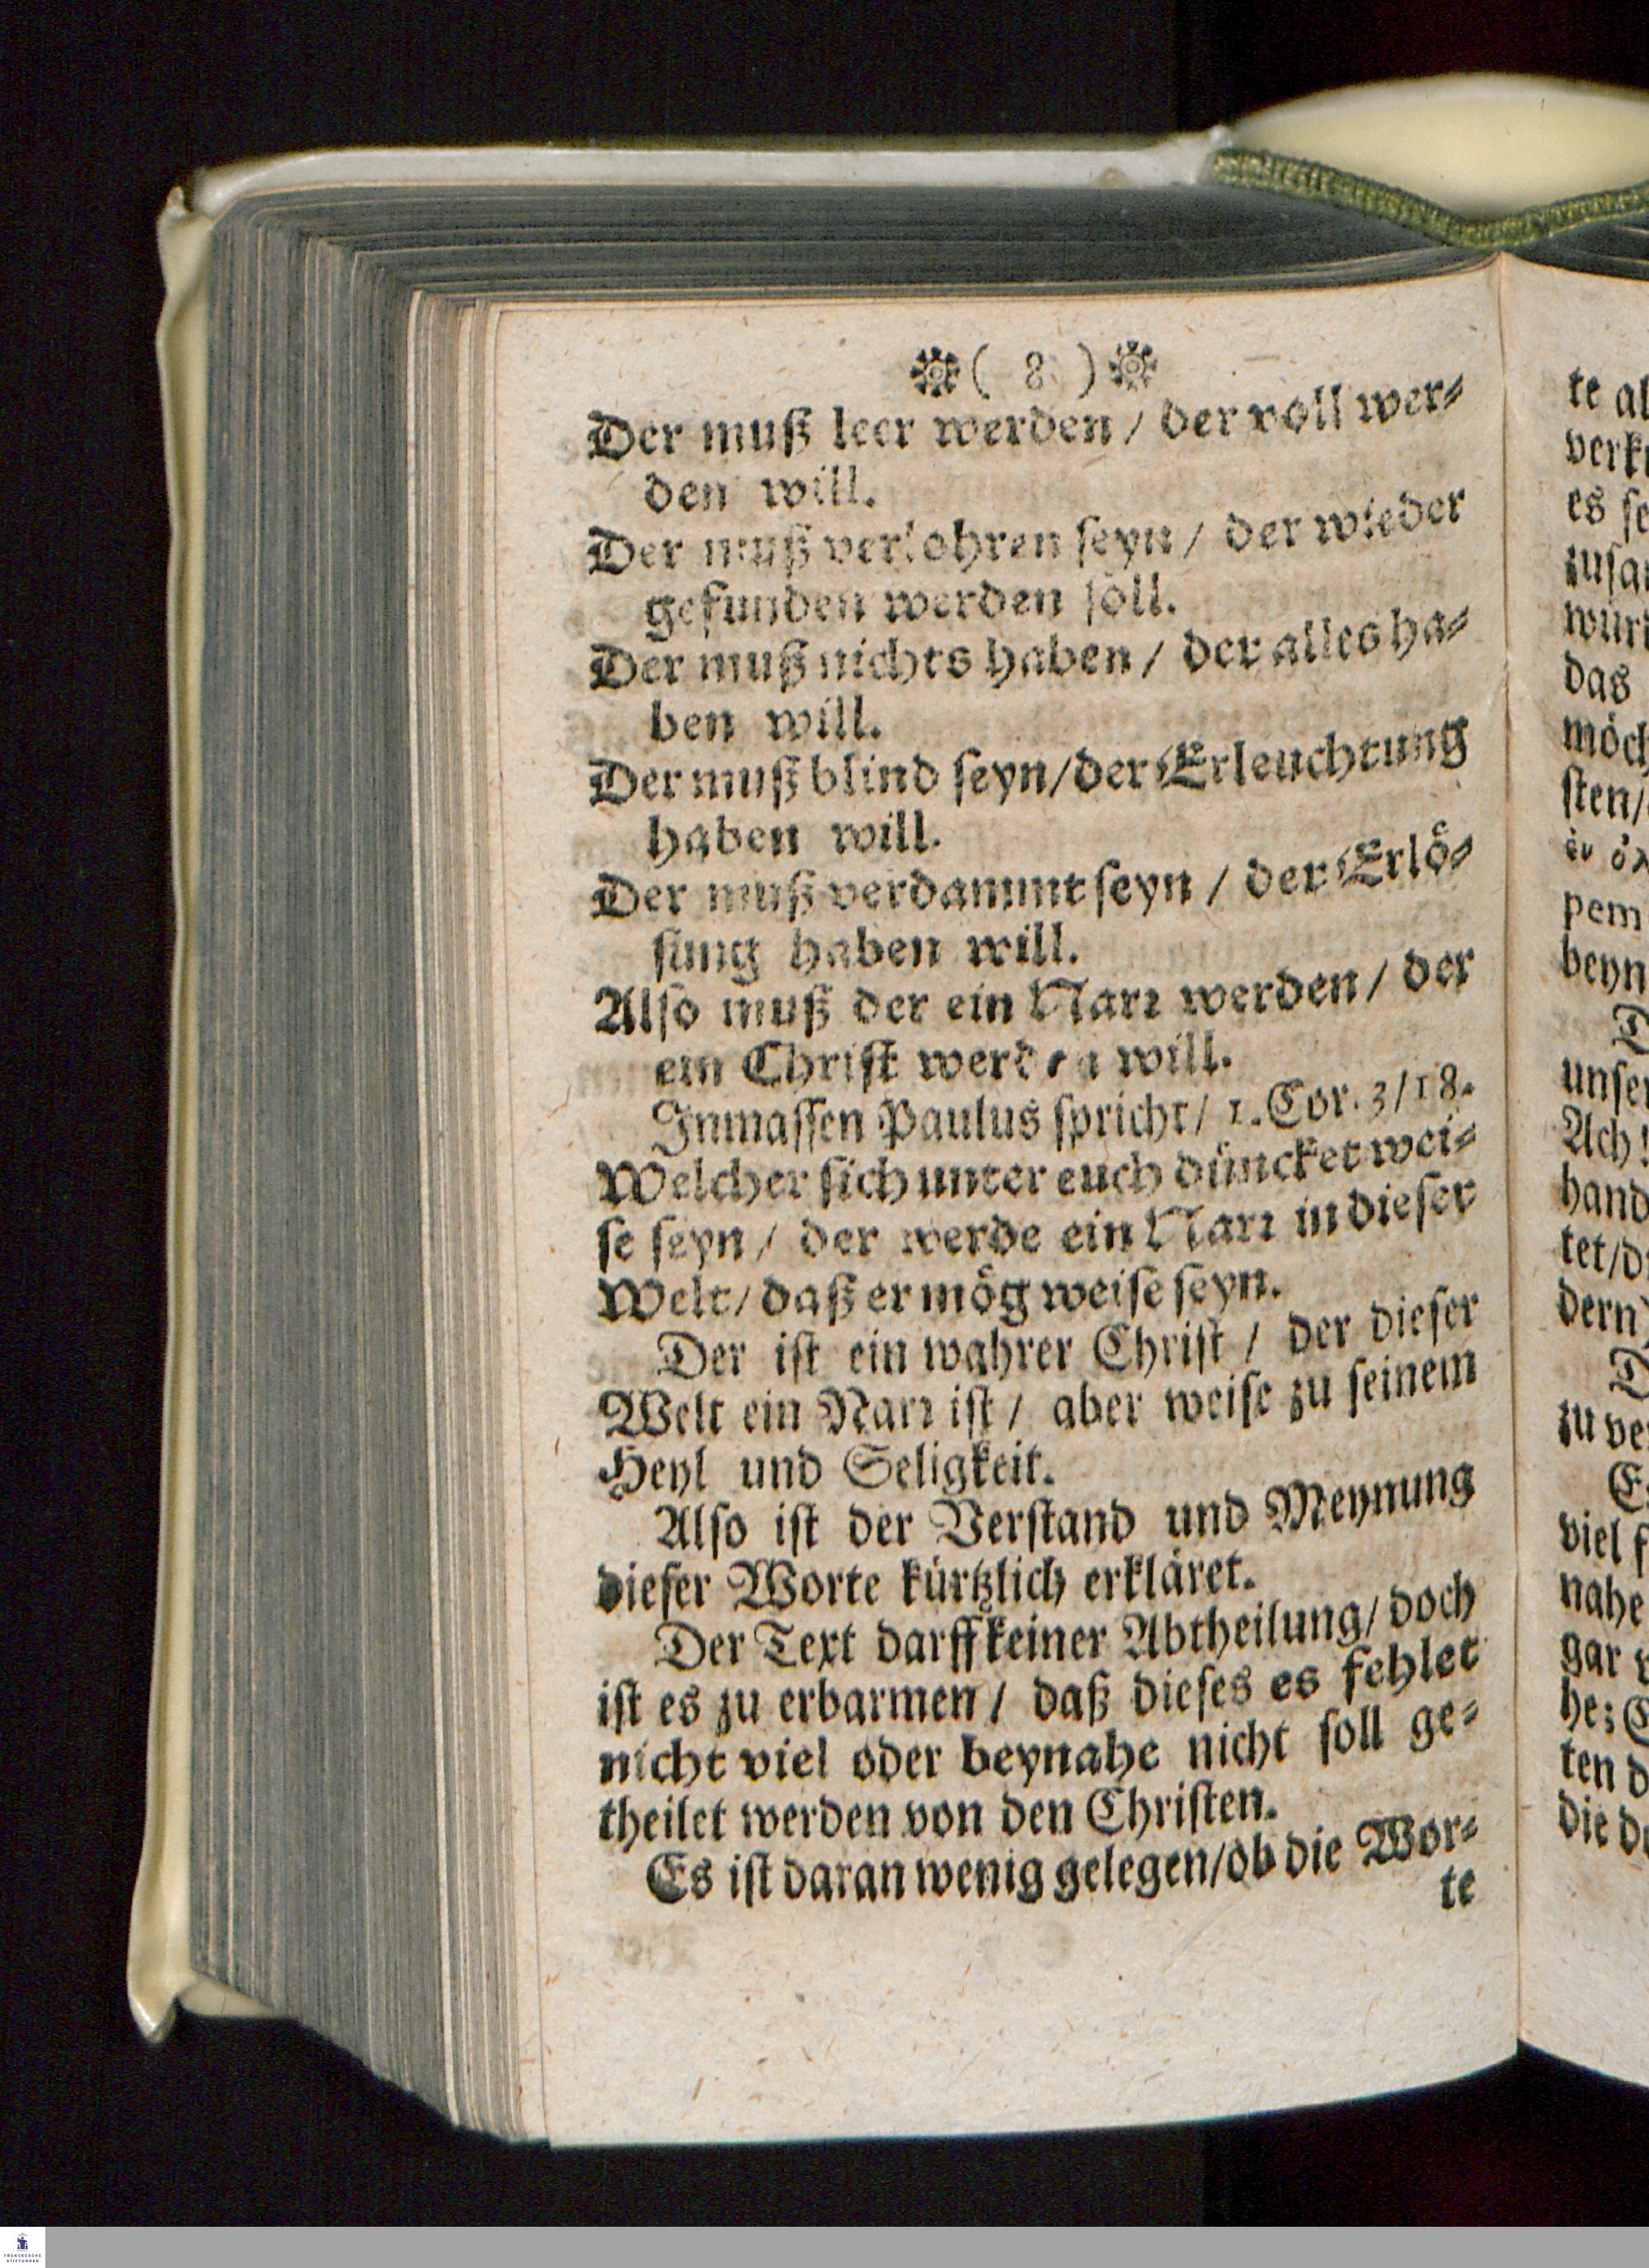 ( 8 )
Der muß leer werden / der voll wer⸗
den will.
Der muß verlohren seyn / der wieder
gefunden werden soll.
Der muß nichts haben / der alles ha⸗
ben will.
Der muß blind seyn/der Erleuchtung
haben will.
Der muß verdammt seyn / der Erlö⸗
sung haben will.
Also muß der ein Narr werden / der
ein Christ werden will.
Inmassen Paulus spricht / 1. Cor. 3/18.
Welcher sich unter euch düncket wei⸗
se seyn / der werde ein Narr in dieser
Welt/ daß er mög weise seyn.
Der ist ein wahrer Christ / der dieser
Welt ein Narr ist / aber weise zu seinem
Heyl und Seligkeit.
Also ist der Verstand und Meynung
dieser Worte kürtzlich erkläret.
Der Text darff keiner Abtheilung/ doch
ist es zu erbarmen / daß dieses es fehlet
nicht viel oder beynahe nicht soll ge⸗
theilet werden von den Christen.
Es ist daran wenig gelegen/ob die Wor⸗
te
te al
verk
es se
zusa
wür
das
möch
sten/
pem
beyn
D
unser
Ach!
hand
tet/d
dern
D
zu ve
E
viel f
nahe
gar
he;
ten d
die d
FRANCKESCHE
STIFTUNGEN